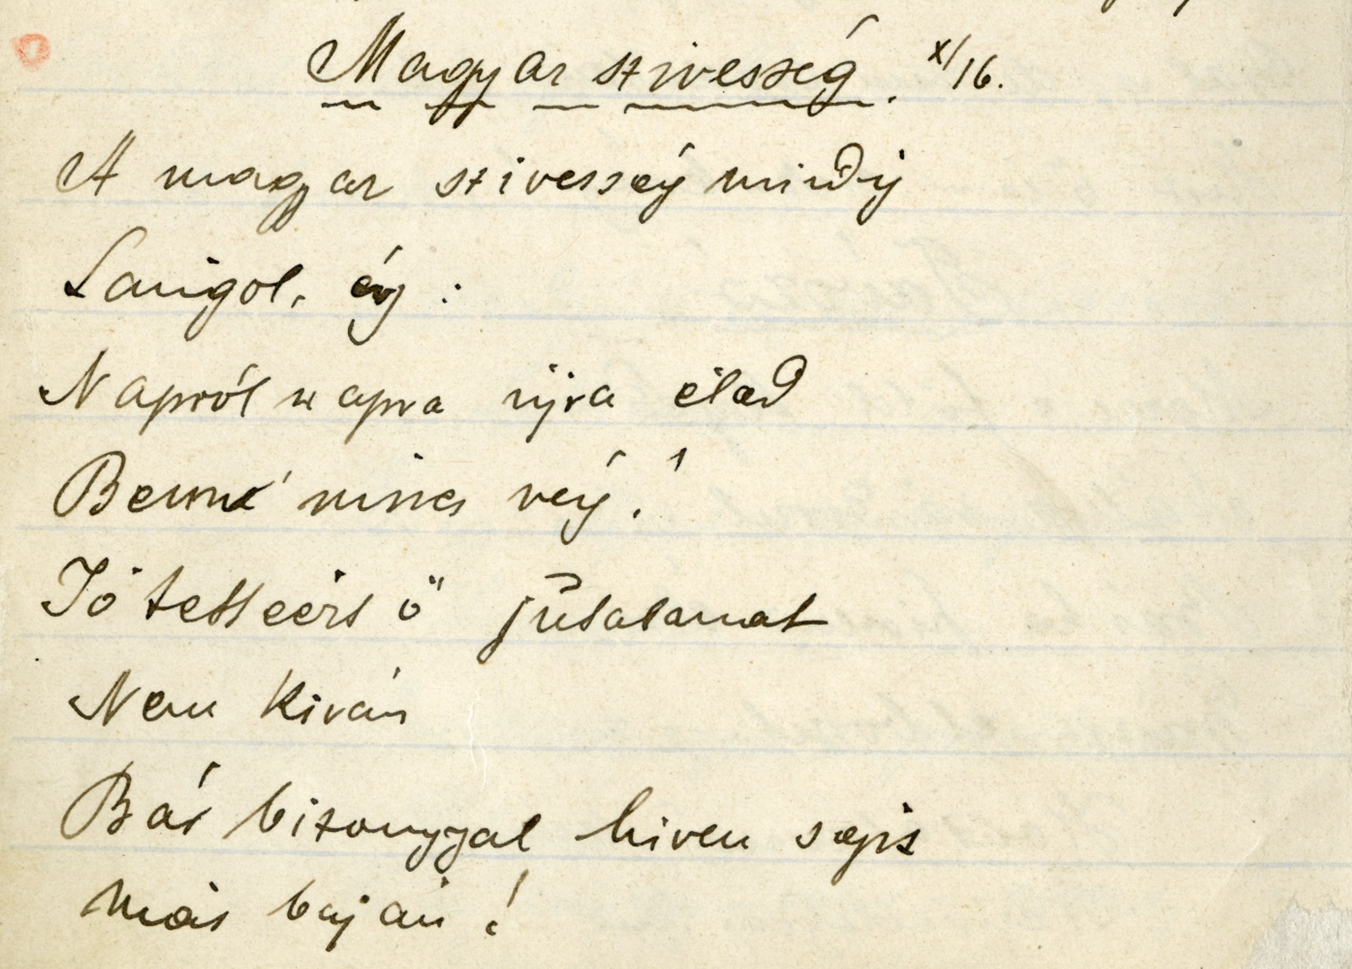 Magyar szivesség. X/16.
A magyar szivesség mindíg
Langol, ég :
Napról napra újra éled
Benne nincs vég!
Jó tetteért ő jutalamat
Nem kiván
Bár bizonnyal hiven segit
más baján!